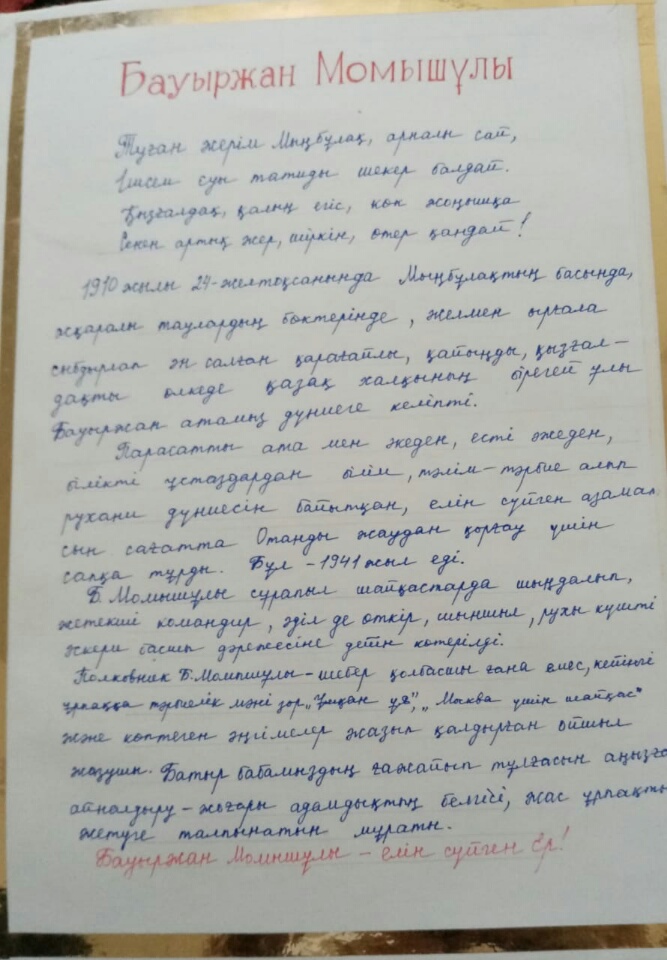 Бауыржан Момышұлы
Туған жерім Мыңбұлақ, арналы сай,
Ішсем суы татиды шекер балдай.
Қызғалдақ, қалың егіс, көк жоңышқа
Сенен артық жер, шіркін, өтер қандай!
1910 жылы 24-желтоқсанында Мыңбұлақтың басында,
асқаралы таулардың бөктерінде, желмен ырғала
сыбдырлап ән салған қарағайлы, қайыңды, қызғал-
дақты өлкеде қазақ халқының бірегей ұлы
Бауыржан атамыз дүниеге келіпті.
Парасатты ата мен әкеден, есті әжеден,
білікті ұстаздардан білім, тәлім-тәрбие алып
рухани дүниесін байытқан, елін сүйген азамат
сын сағатта Отанды жаудан қорғау үшін
сапқа тұрды. Бұл - 1941 жыл еді.
Б. Момышұлы сұрапыл шайқастарда шыңдалып,
жетекші командир, әділ де өткір, шыншыл, рухы күшті
әскери басшы дәрежесіне дейін көтерілді.
Полковник Б. Момышұлы - шебер қолбасшы ғана емес, кейінгі
ұрпаққа тәрбиелік мәні зор „Ұшқан ұя", „Москва үшін шайқас"
және көптеген әңгімелер жазып қалдырған ойшыл
жазушы. Батыр бабамыздың ғажайып тұлғасын аңызға
айналдыру - жоғары адамдықтың белгісі, жас ұрпақты
жетуге талпынатын мұраты.
Бауыржан Момышұлы - елін сүйген Ер!